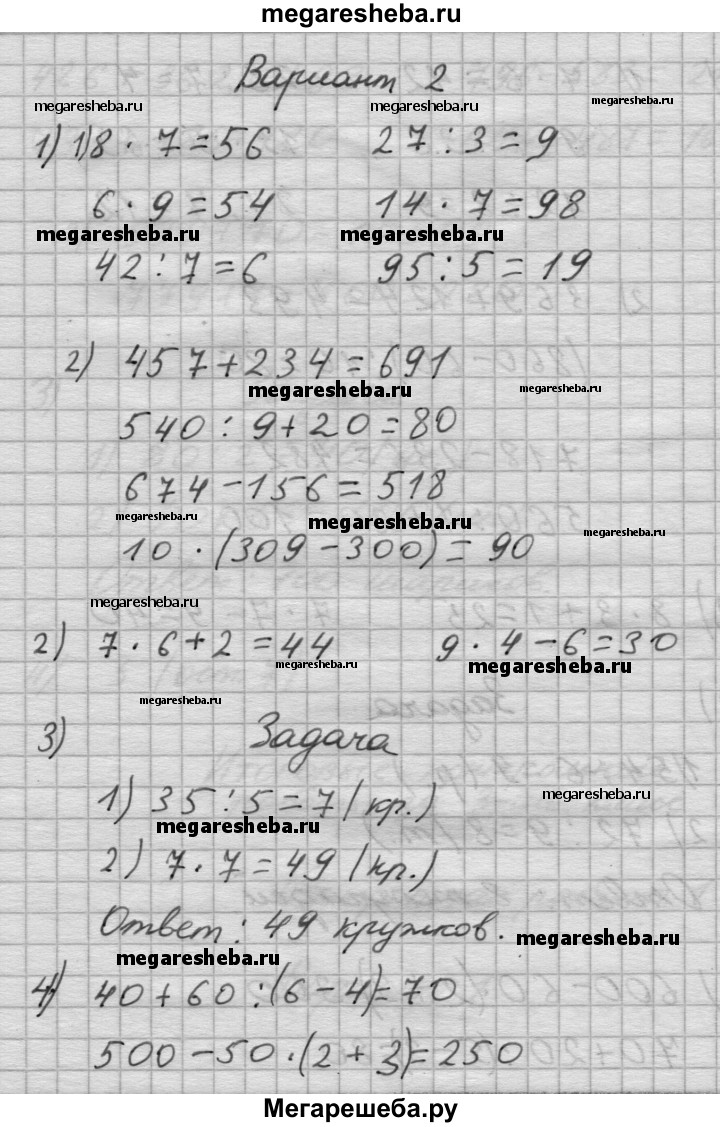 megaresheba.ru
Вариант 2
megaresheba.ru megaresheba.ru megaresheba.ru
1) 1) 8 · 7 = 56 27 : 3 = 9
6 · 9 = 54 14 · 7 = 98
megaresheba.ru megaresheba.ru
42 : 7 = 6 95 : 5 = 19
2) 457 + 234 = 691
megaresheba.ru megaresheba.ru
540 : 9 + 20 = 80
674 - 156 = 518
megaresheba.ru megaresheba.ru megaresheba.ru
10 · (309 - 300) = 90
megaresheba.ru
2) 7 · 6 + 2 = 44 9 · 4 - 6 = 30
megaresheba.ru megaresheba.ru
megaresheba.ru
3) Задача
1) 35 : 5 = 7 (кр.)
megaresheba.ru
megaresheba.ru
2) 7 · 7 = 49 (кр.)
Ответ: 49 кружков.
megaresheba.ru
megaresheba.ru
4) 40 + 60 : (6 - 4) = 70
500 - 50 · (2 + 3) = 250
Мегарешеба.ру